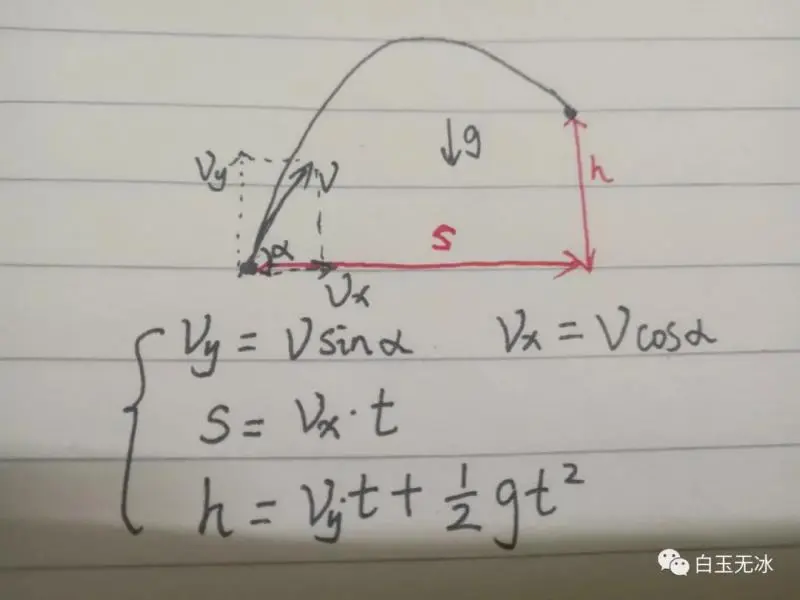 Vy V g h
α S
Vx
Vy = V sinα Vx = V cosα
S = Vx · t
h = Vy t + 1/2 gt²
白玉无冰